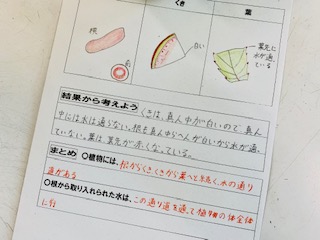 くき
葉
根
白い
葉先に
水が通っ
ている
結果から考えよう くきは、真ん中が白いので、真ん
中には水は通らない。根も真ん中らへんが白いから水が通っ
ていない。葉は、葉先が赤くなっている。
まとめ ○植物には、根からくき、くきから葉へと続く、水の通り
道がある
○根から取り入れられた水は、この通り道を通って植物の体全体
に行